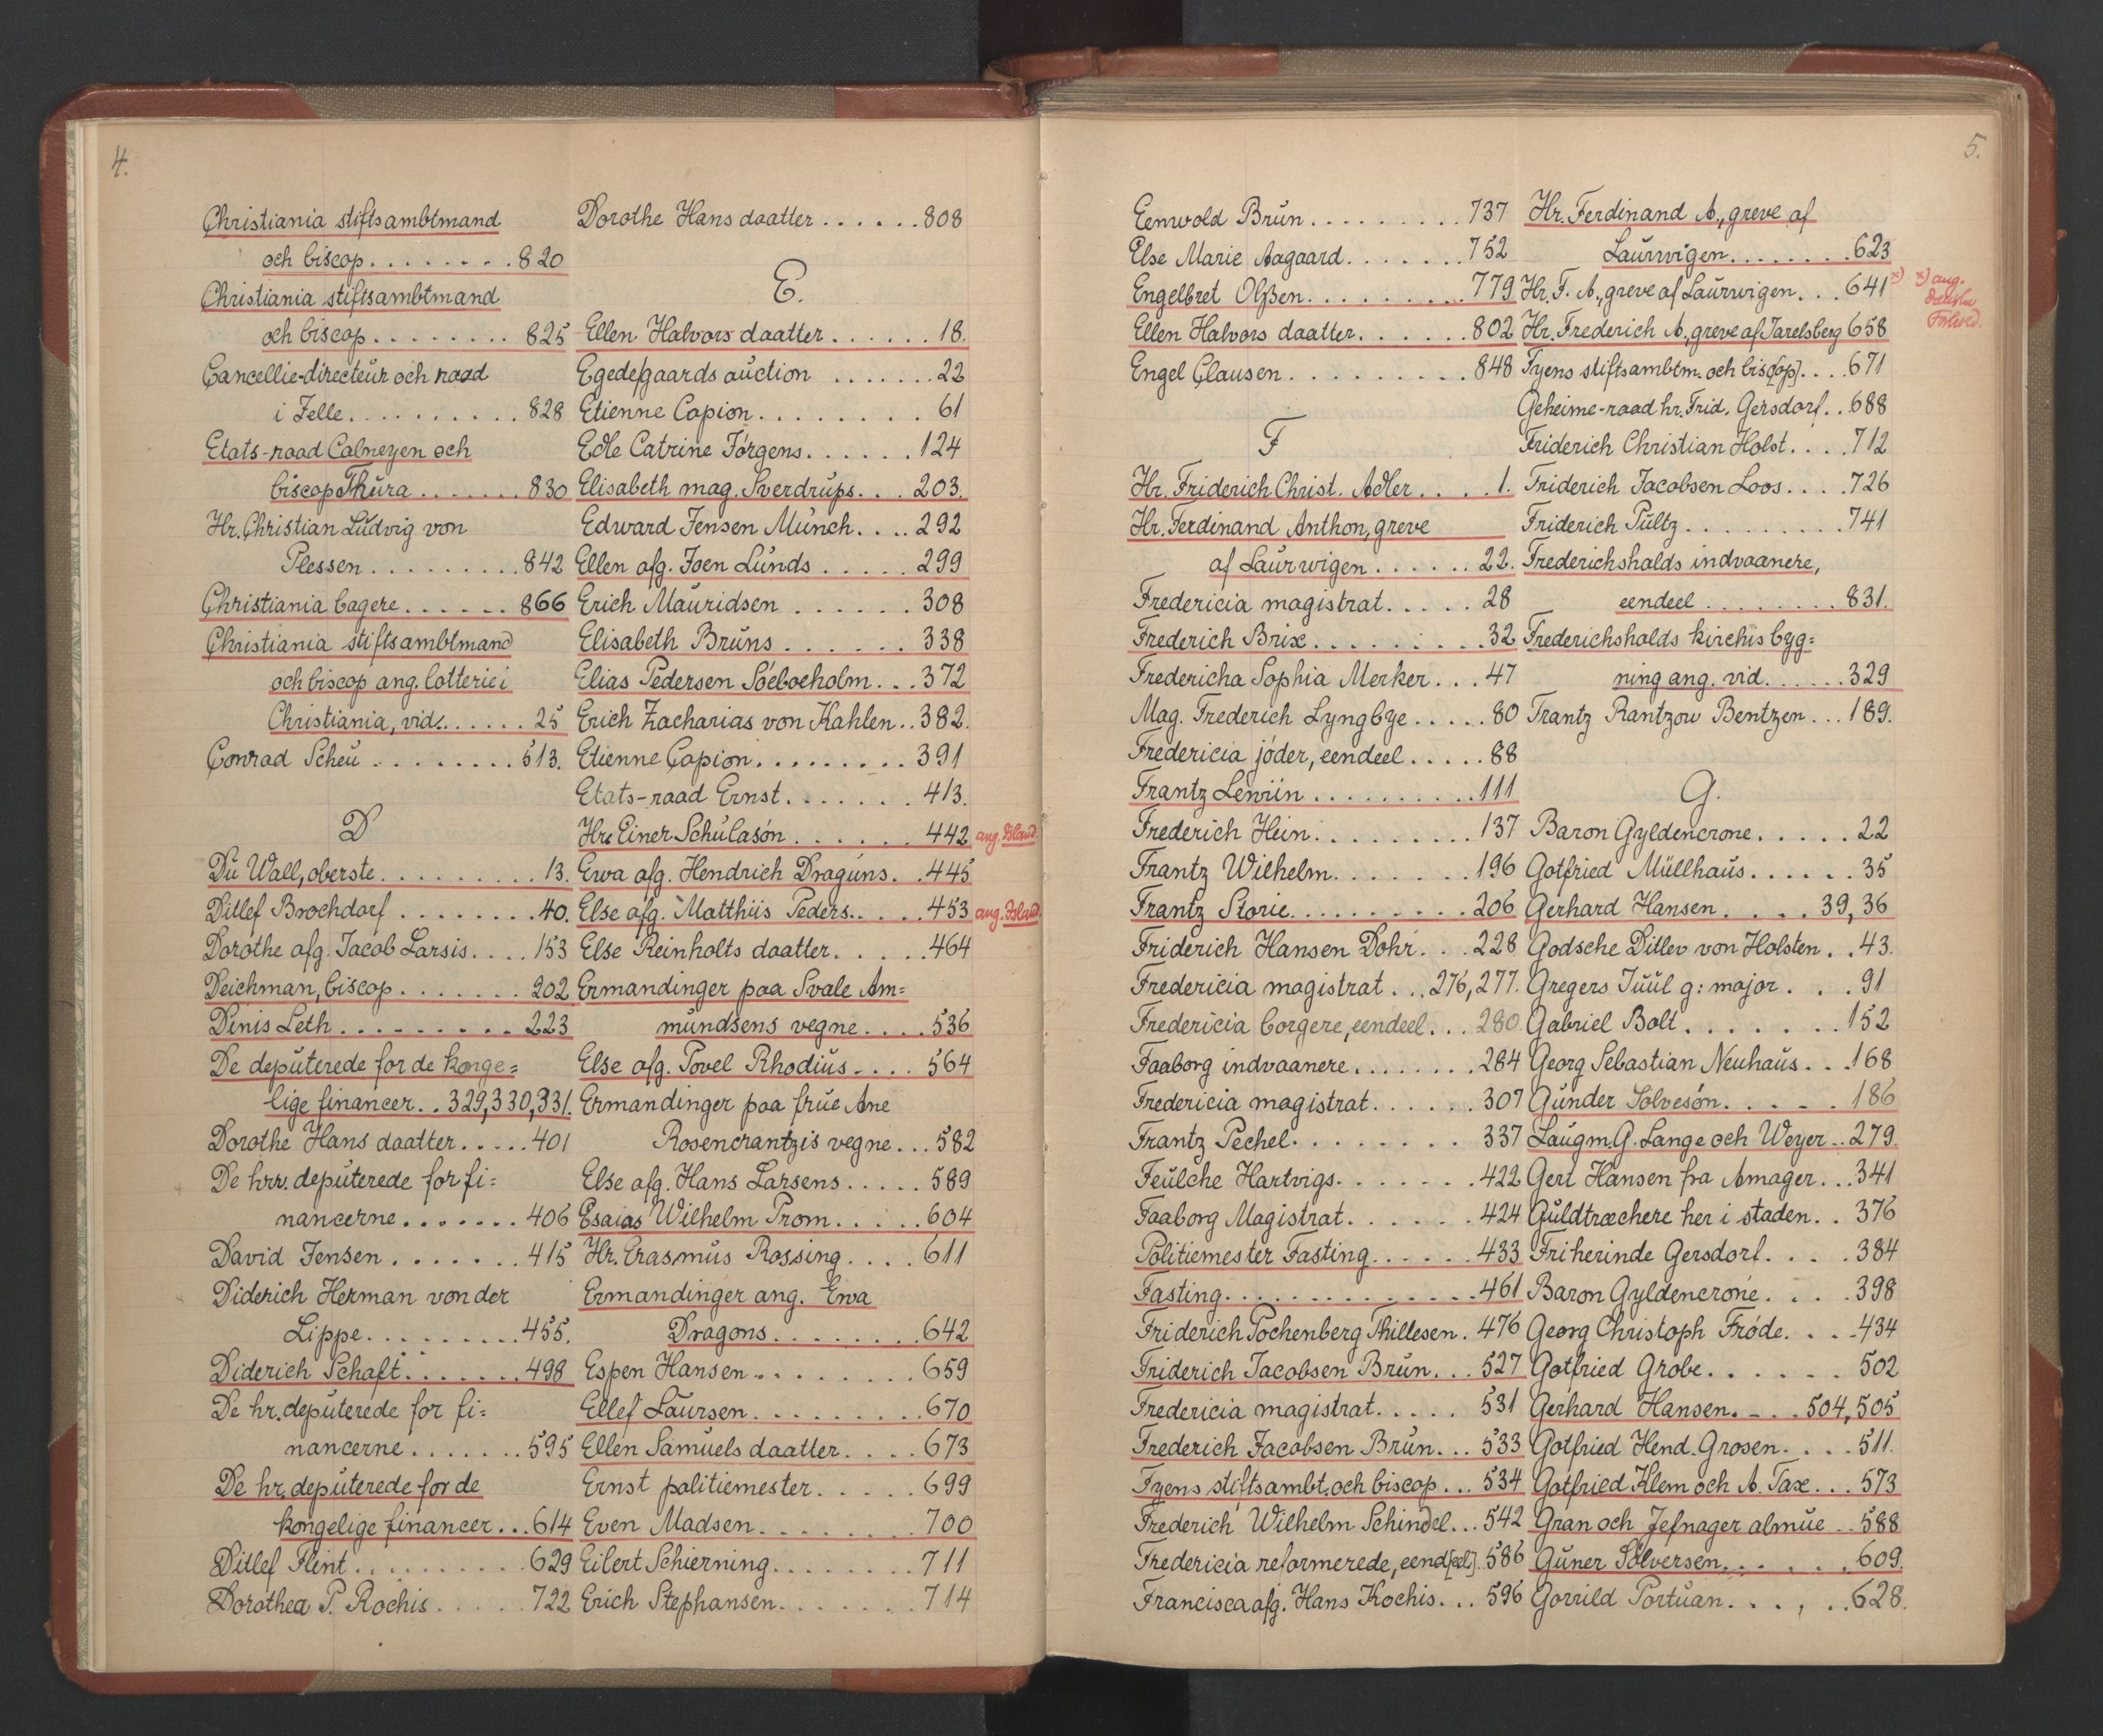 4.
Christiania stiftsambtmand
och biscop . . . . . . . . 820
Christiania stiftsambtmand
och biscop . . . . . . . . 825
Cancellie-directeur och raad
i Zelle . . . . . . . . . . 828
Etats-raad Calneyen och
biscop Thura . . . . . . . 830
Hr. Christian Ludvig von
Plessen . . . . . . . . . 842
Christiania bagere . . . . . . 866
Christiania stiftsambtmand
och biscop ang. lotterie i
Christiania, vid. . . . . . 25
Conrad Scheu . . . . . . . . 613.
D
Du Wall, oberste . . . . . . . . . 13.
Ditlef Brochdorf . . . . . . . . 40.
Dorothe afg. Jacob Larsis . . . . 153
Deichman, biscop . . . . . . . 202
Dinis Leth . . . . . . . . . 223
De deputerede for de konge=
lige financer . . 329, 330, 331.
Dorothe Hans daatter . . . . . 401
De hrr. deputerede for fi=
nancerne . . . . . . . 406
David Jensen . . . . . . . 415
Diderich Herman von der
Lippe . . . . . . . . . 455.
Diderich Schaft . . . . . . . 498
De hr. deputerede for fi=
nancerne . . . . . . . 595
De hr. deputerede for de
kongelige financer . . . 614
Ditlef Flint . . . . . . . . . . 629
Dorothea P. Rochis . . . . . 722
Dorothe Hans daatter . . . . . . 808
E.
Ellen Halvors daatter . . . . . . 18.
Egedesgaards auction . . . . . . . 22
Etienne Capion . . . . . . . . . 61
Edle Catrine Jörgens . . . . . . 124
Elisabeth mag. Sverdrups . . . 203.
Edward Jensen Munch . . . . 292
Ellen afg. Joen Lunds . . . . . 299
Erich Mauridsen . . . . . . 308
Elisabeth Bruns . . . . . . 338
Elias Pedersen Söeboeholm . . . 372
Erich Zacharias von Kahlen . . 382.
Etienne Capion . . . . . . . . . 391
Etats-raad Ernst . . . . . . . 413.
Hr. Einer Schulasön . . . . . . 442 ang. Island.
Ewa afg. Hendrich Draguns . . 445
Else afg. Matthiis Peders . . . . 453 ang. Island.
Else Reinholts daatter . . . . . 464
Ermandinger paa Svale Am=
mundsens vegne . . . . 536
Else afg. Povel Rhodius . . . . 564
Ermandinger paa frue Ane
Rosencrantzis vegne . . . 582
Else afg. Hans Larsens . . . . . 589
Esaias Wilhelm Prom . . . . . 604
Hr. Erasmus Rossing . . . . 611
Ermandinger ang. Ewa
Dragons . . . . . . . . 642
Espen Hansen . . . . . . . . . 659
Ellef Laursen . . . . . . . . . 670
Ellen Samuels daatter . . . . 673
Ernst politiemester . . . . . 699
Even Madsen . . . . . . . . 700
Eilert Schierning . . . . . . . . 711
Erich Stephansen . . . . . . . 714
5.
Eenwold Brun . . . . . . . . . 737
Else Marie Aagaard . . . . . . . 752
Engelbret Olssen . . . . . . . . . 779
Ellen Halvors daatter . . . . . . 802
Engel Clausen . . . . . . . . . . 848
F
Hr. Friderich Christ. Adler . . . . 1.
Hr. Ferdinand Anthon, greve
af Laurwigen . . . . . . 22.
Fredericia magistrat . . . . . 28
Frederich Brix . . . . . . . . . 32
Fredericha Sophia Merker . . . 47
Mag. Frederich Lyngbye . . . . . 80
Fredericia jöder, eendeel . . . . . 88
Frantz Lewiin . . . . . . . . . . 111
Frederich Hein . . . . . . . . . 137
Frantz Wilhelm . . . . . . . 196
Frantz Storie . . . . . . . . . . 206
Friderich Hansen Dohr . . . 228
Fredericia magistrat . . . 276, 277.
Fredericia borgere, eendeel . . . 280
Faaborg indvaanere . . . . . . . . 284
Fredericia magistrat . . . . . . 307
Frantz Pechel . . . . . . . . 337
Feulche Hartvigs . . . . . . . 422
Faaborg Magistrat . . . . . . 424
Politiemester Fasting . . . . . . 433
Fasting . . . . . . . . . . . . . . 461
Friderich Pochenberg Thillesen . 476
Friderich Jacobsen Brun . . . 527
Fredericia magistrat . . . . . 531
Frederich Jacobsen Brun . . . 533
Fyens stiftsambt. och biscop . . . 534
Frederich Wilhelm Schindel . . . 542
Fredericia reformerede, eend[eel] . . 586
Francisca afg. Hans Kochis . . . 596
Hr. Ferdinand A., greve af
Laurwigen . . . . . . . . 623
Hr. F. A., greve af Laurwigen . . . 641 x) x) ang.
danske
Forhold.
Hr. Frederich A., greve af Jarelsberg 658
Fyens stiftsambtm. och bisc[op] . . . . 671
Geheime-raad hr. Frid. Gersdorf . . 688
Friderich Christian Holst . . . . 712
Friderich Jacobsen Loos . . . . 726
Friderich Pultz . . . . . . . . . 741
Frederichshalds indvaanere,
eendeel . . . . . . . . 831.
Frederichshalds kirchis byg=
ning ang. vid. . . . . . . 329
Frantz Rantzow Bentzen . . . 189.
G.
Baron Gyldencrone . . . . . 22
Gotfried Müllhaus . . . . . . 35
Gerhard Hansen . . . . 39, 36
Godsche Ditlev von Holsten . . 43.
Gregers Juul g: major . . . 91
Gabriel Bolt . . . . . . . 152
Georg Sebastian Neuhaus . . . 168
Gunder Solvesön . . . . . 186
Laugm. G. Lange och Weyer . . 279.
Gert Hansen fra Amager . . . 341
Guldtræchere her i staden . . 376
Friherinde Gersdorf . . . . 384
Baron Gyldencrone . . . . 398
Georg Christoph Fröde . . . . 434
Gotfried Grobe . . . . . . 502
Gerhard Hansen . . . . 504, 505
Gotfried Hend. Grosen . . . . 511.
Gotfried Klem och A. Tax . . . 573
Gran och Jefnager almue . . 588
Guner Sölversen . . . . . . 609.
Gorrild Portuan . . . , . . 628.